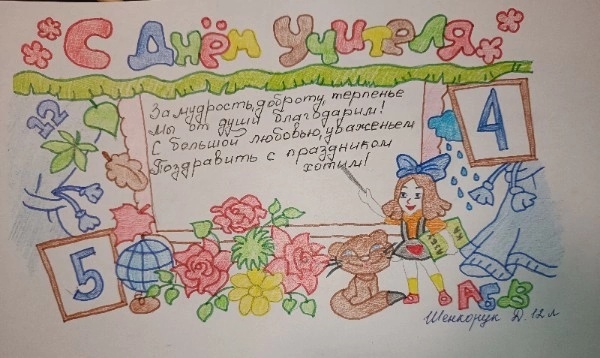 С Днём Учителя
За мудрость, доброту, терпенье
Мы от души благодарим!
С большой любовью, уваженьем
Поздравить с праздником
хотим!
12
4
5
АЗБУ
КА
АБВ
Шенкорук Д. 12 л